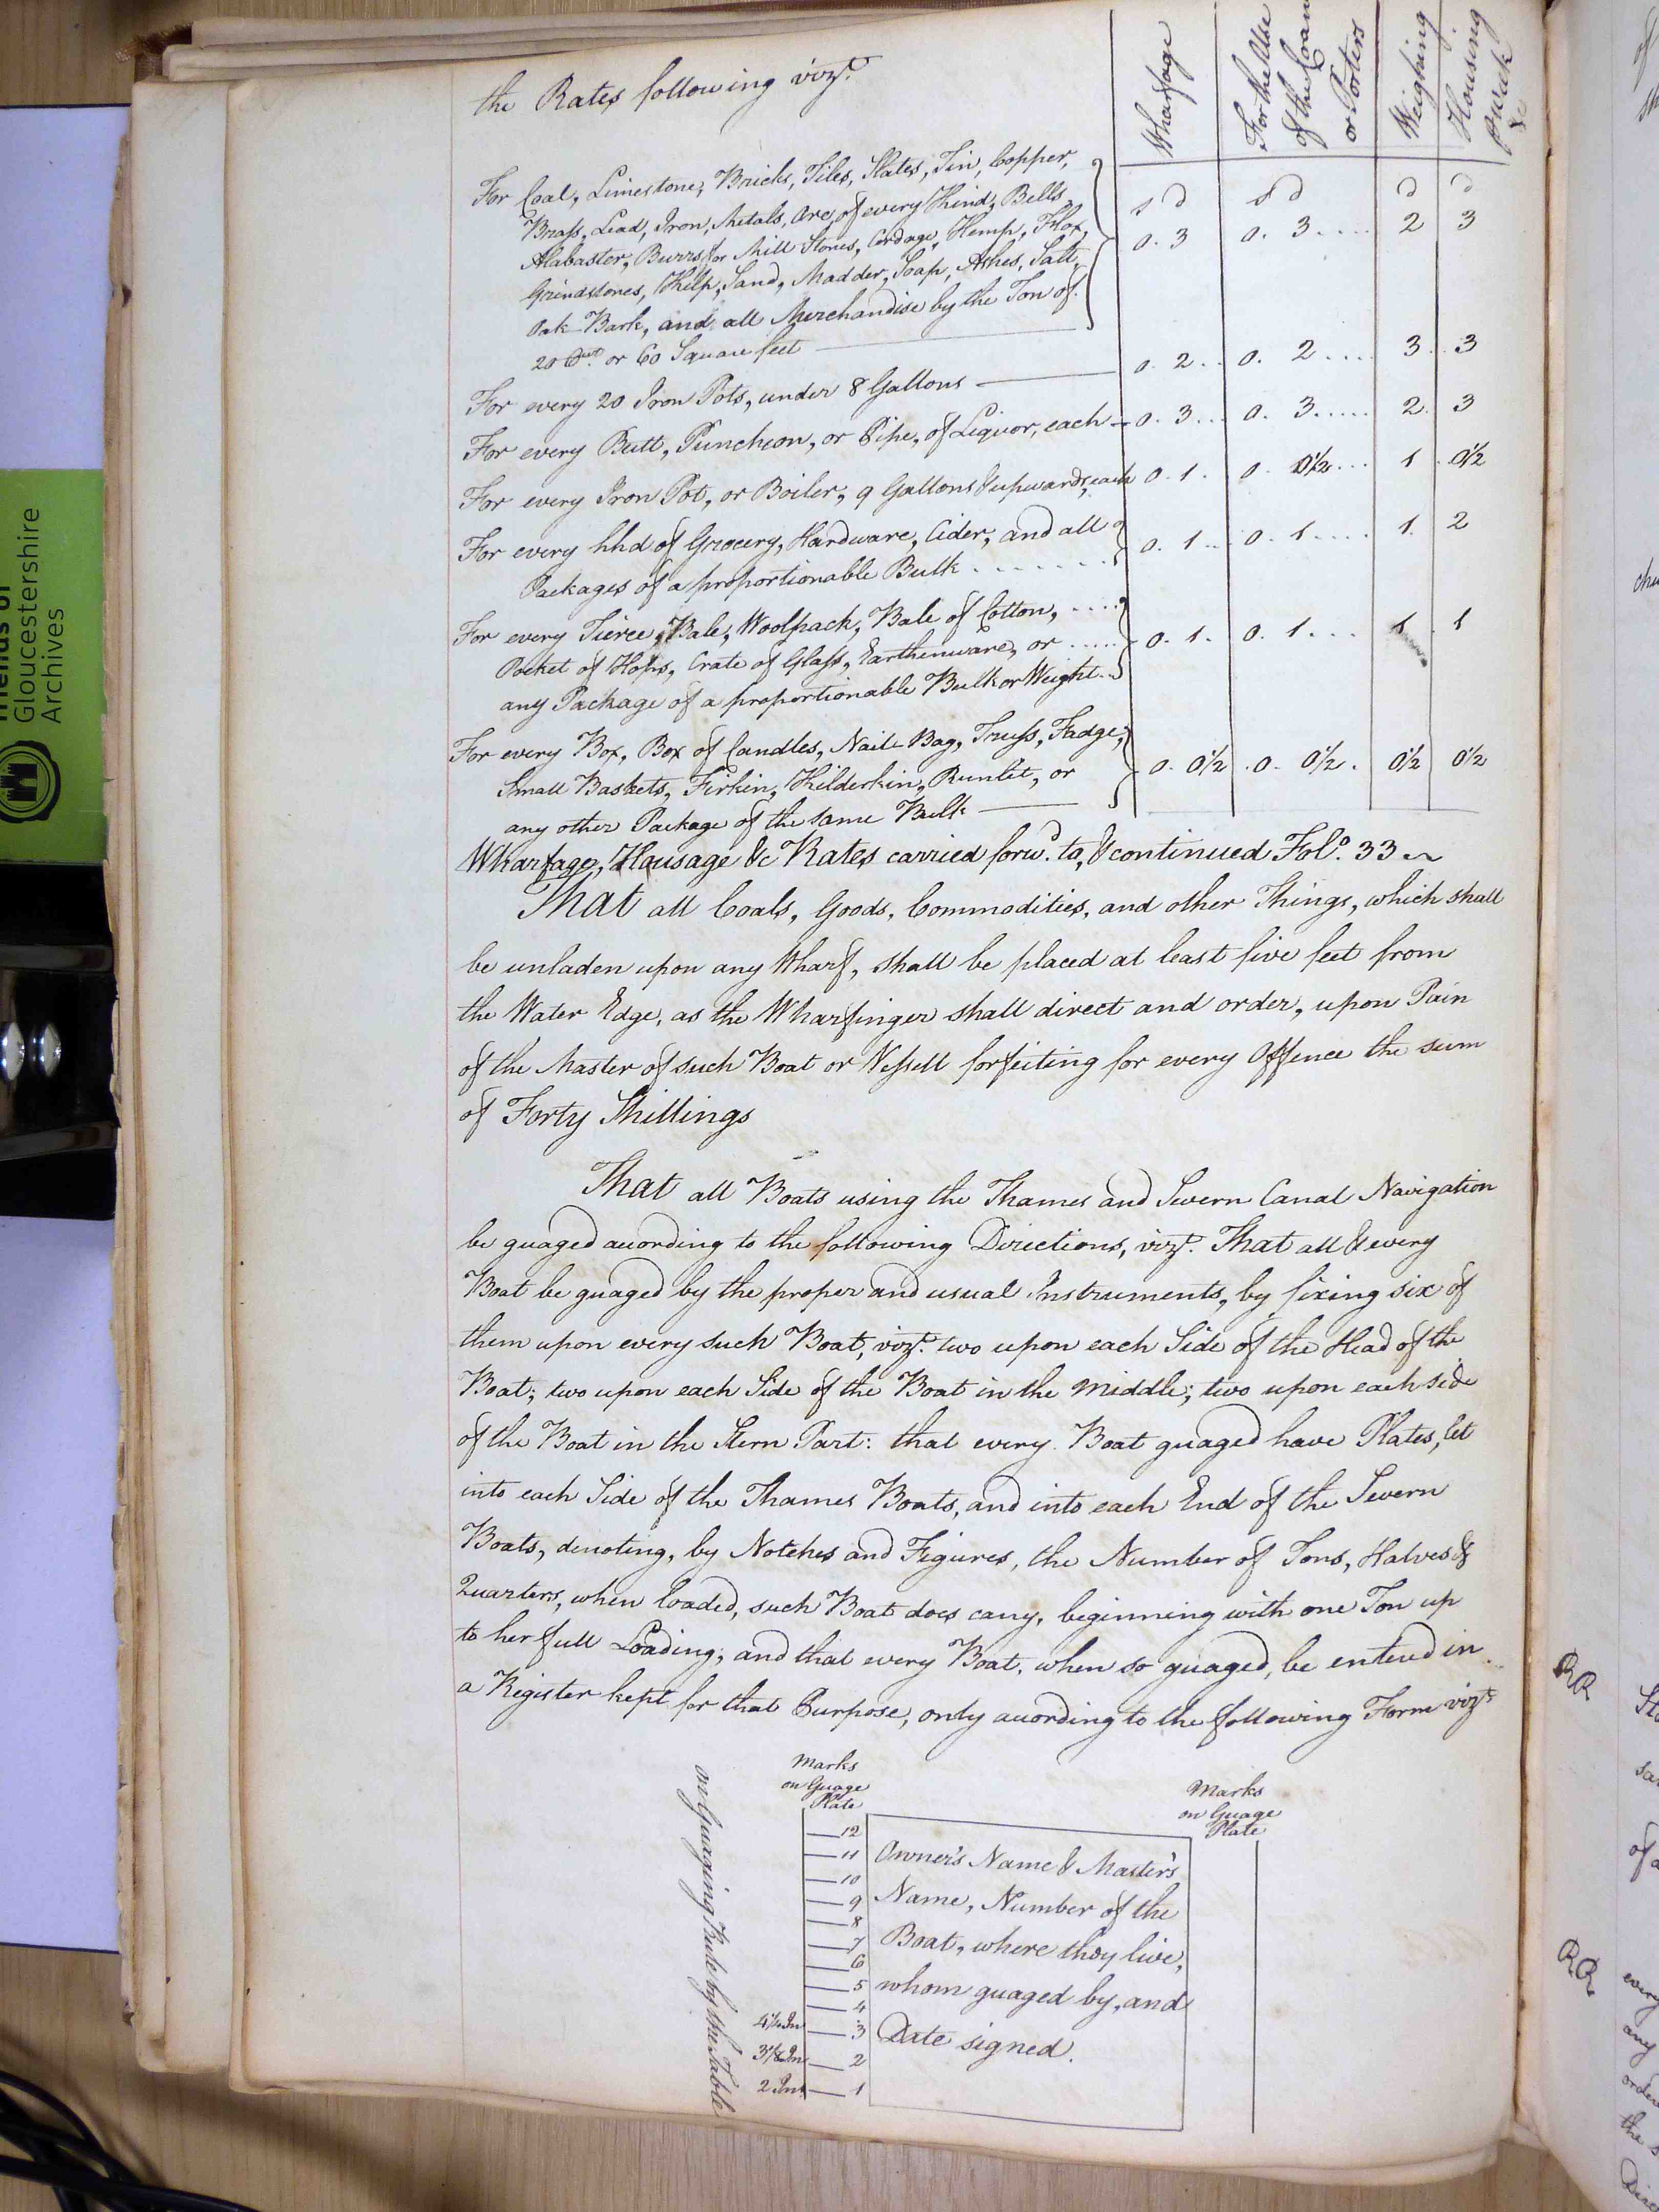 the Rates following vizt.
Wharfage
For the Use
of the Crane
or Porters
Weighing
Housing
p Week
&c
For Coal, Limestone, Bricks, Tiles, Slates, Tin, Copper,
Brass, Lead, Iron, Metals, Ore, of every Kind, Bells
Alabaster, Burrs for Mill Stones, Cordage, Hemp, Flax,
Grindstones, Kelp, Sand, Madder, Soap, Ashes, Salt,
Oak Bark, and all Merchandise by the Ton of
20 Cwt. or 60 Square feet
s d s d d d
0. 3 0. 3.... 2 3
For every 20 Iron Pots, under 8 Gallons 0. 2.. 0. 2.... 3. 3
For every Butt, Puncheon, or Pipe, of Liquor, each 0. 3... 0. 3..... 2. 3
For every Iron Pot, or Boiler, 9 Gallons & upwards, each 0. 1. 0. 0½... 1. 0½
For every hhd of Grocery, Hardware, Cider, and all
Packages of a proportionable Bulk....... 0. 1.. 0. 1.... 1. 2
For every Tierce, Bale, Woolpack, Bale of Cotton,....
Pocket of Hops, Crate of Glass, Earthenware, or.....
any Package of a proportionable Bulk or Weight.. 0. 1. 0. 1... 1. 1
For every Box, Box of Candles, Naile Bag, Truss, Fadge,
Small Baskets, Firkin, Kilderkin, Runlet, or
any other Package of the same Bulk 0. 0½ .0. 0½. 0½ 0½
Wharfage, Housage &c Rates carried forwd. to, & continued Folo. 33
That all Coals, Goods, Commodities, and other Things, which shall
be unladen upon any Wharf, shall be placed at least five feet from
the Water Edge, as the Wharfinger shall direct and order, upon Pain
of the Master of such Boat or Vessell forfeiting for every Offence the sum
of Forty Shillings
That all Boats using the Thames and Severn Canal Navigation
be guaged according to the following Directions, vizt. That all & every
Boat be guaged by the proper and usual Instruments, by fixing six of
them upon every such Boat, vizt. two upon each Side of the Head of the
Boat; two upon each Side of the Boat in the Middle; two upon each side
of the Boat in the Stern Part: that every Boat guaged have Plates, let
into each Side of the Thames Boats, and into each End of the Severn
Boats, denoting, by Notches and Figures, the Number of Tons, Halves &
Quarters, when loaded, such Boat does carry, beginning with one Ton up
to her full Loading; and that every Boat, when so guaged, be entered in
a Register kept for that Purpose, only according to the following Form vizt.
on Guaging Rule by the Table
Marks
on Guage
Plate
12
11
10
9
8
7
6
5
4
4¼ In 3
3⅛ In 2
2 Ins 1
Owner's Name & Master's
Name, Number of the
Boat, where they live,
whom guaged by, and
Date signed.
Marks
on Guage
Plate
Friends of
Gloucestershire
Archives
RR
RR
every
any
order
the s